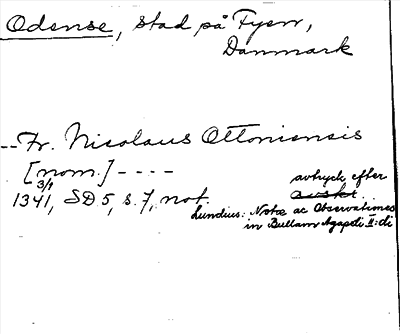 Odense, stad på Fyen,
Danmark
-- Fr. Nicolaus Ottoniensis
[nom.] - - - -
3/9
1341, SD 5, s. 7, not.
avtryck efter
avskr.
Lundius: Notæ ac Observationes
in Bullam Agapeti II:di